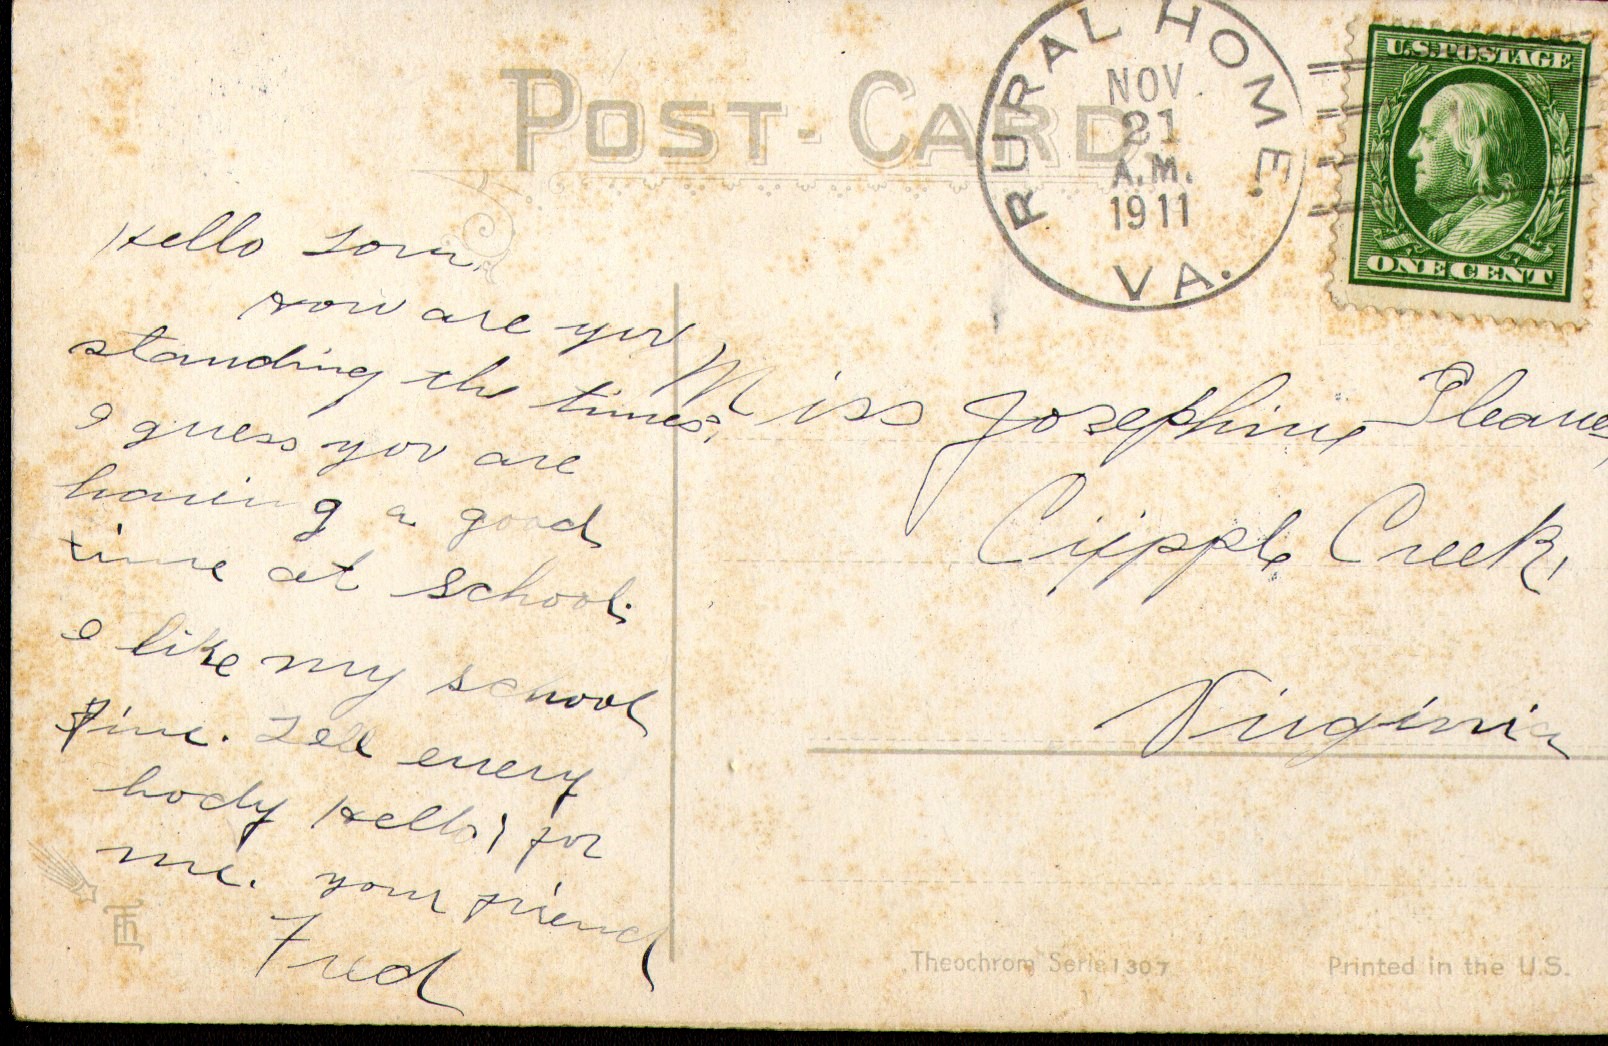 POST-CARD
RURAL HOME.
NOV
21
A.M.
1911
VA.
U.S. POSTAGE
ONE CENT
Hello
How are you
standing the times.
I guess you are
having a good
time at school.
I like my school
fine. Tell every
body Hello, for
me. your friend
Fred
Miss Josephine
Cripple Creek,
Virginia
TH
Theochrom Serie 1307
Printed in the U.S.